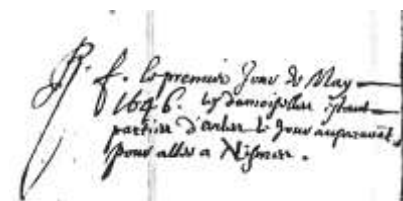 f. le premier Jour de May
1646. les damoiselles estant
parties d'arles le Jour auparavant
pour aller a Nismes.